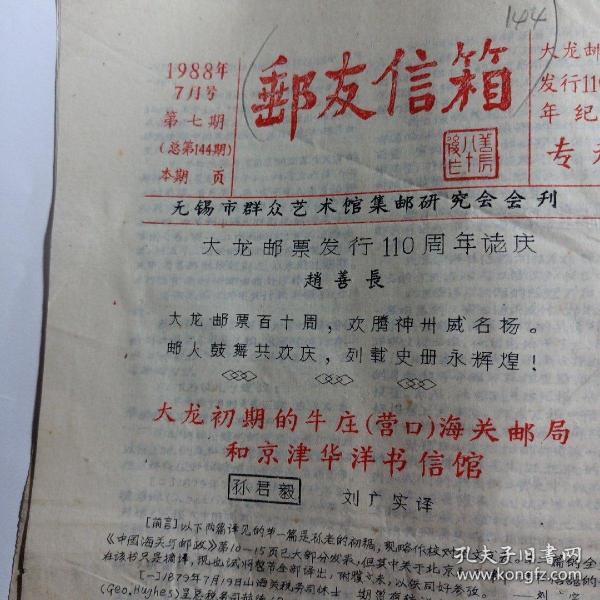 144
1988年
7月号
第七期
(总第144期)
本期 页
郵友信箱
大龙邮
发行110
年纪
专
无锡市群众艺术馆集邮研究会会刊
大龙邮票发行110周年志庆
趙善長
大龙邮票百十周，欢腾神州威名杨。
邮人鼓舞共欢庆，列载史册永辉煌！
大龙初期的牛庄(营口)海关邮局
和京津华洋书信馆
孙君毅 刘广实译
[前言]以下两篇译见的第一篇是孙老的初稿，现略作校对
《中国海关与邮政》第10-15页已大部分发表，但其中关于北京
在该书只是摘译，现也试将整节全部译出，附骥文末，以供同好参考。
[一]1879年7月19日山海关税务司休士
(Geo.Hughes)
孔夫子旧书网